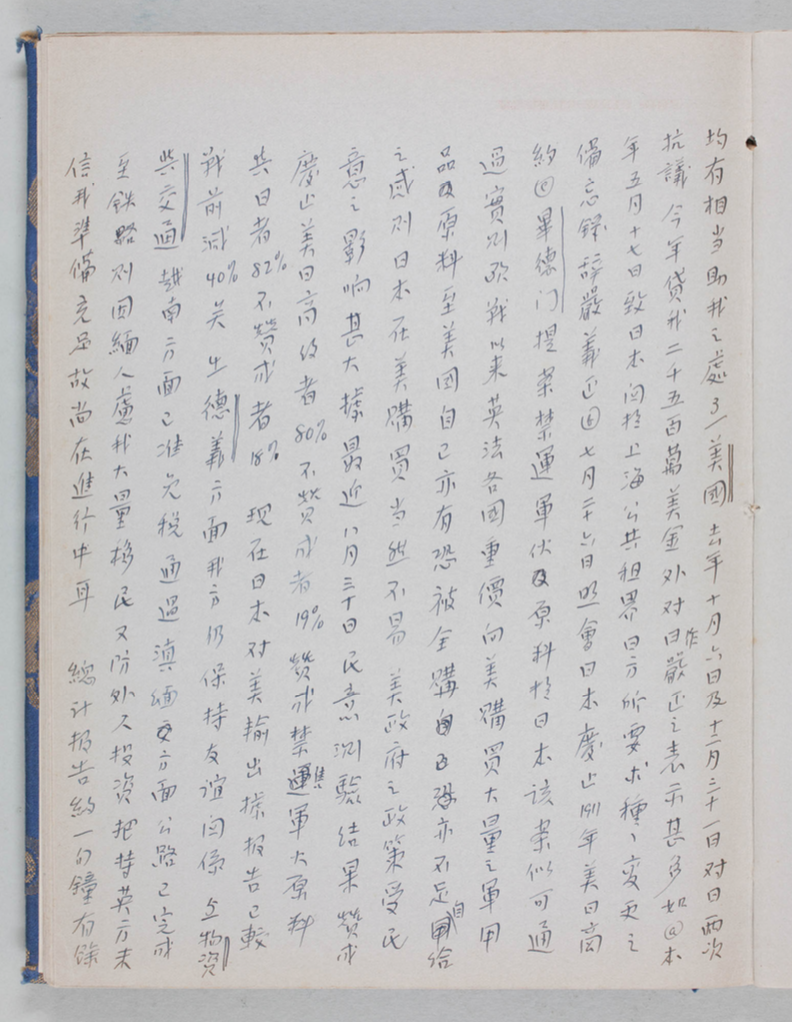 均有相当助我之處3/美國去年十月六日及十二月三十一日対日両次
抗議今年貸我二千五百萬美金外対日作嚴正之表示甚多如@本
年五月十七日致日本関於上海公共租界日方所要求種々変更之
備忘録辞嚴義正 七月二十六日照會日本廢止1911年美日商
約@畢德门提案禁運軍伙及原料於日本該案似可通
過實則欧戦以来英法各國重價向美購買大量之軍用
品及原料至美国自己亦有恐被全購自己恐亦不足自給
之感則日本在美購買当然不易 美政府之政策受民
意之影响甚大據最近八月三十日民意測驗結果賛成
廢止美日商约者80%不賛成者19%賛成禁售軍火原料
與日者82%不賛成者18% 現在日本对美輸出據报告已較
戦前減40%矣 4/德義方面我方仍保持友谊関係 5/物资
與交通越南方面已准免税通過滇缅方面公路已完成
至鉄路則因緬人慮我大量移民又防外人投資把持英方未
信我準備充足故尚在進行中耳 總计报告約一句鐘有餘